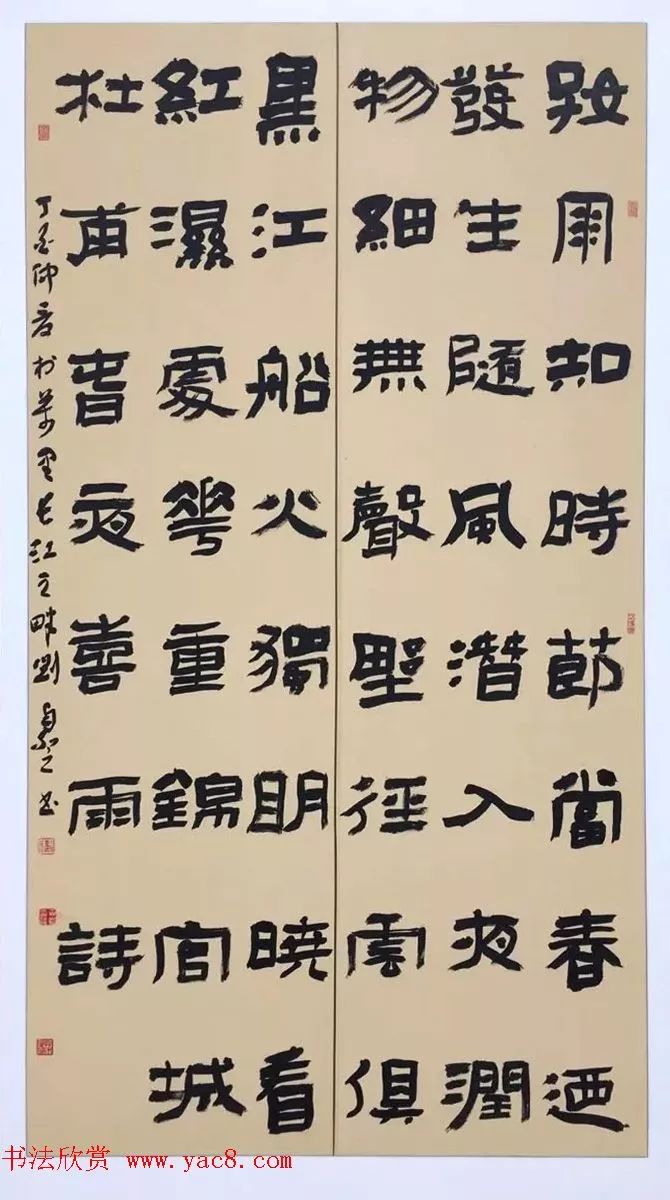 好雨知時節當春迺
發生隨風潛入夜潤
物細無聲野徑雲俱
黑江船火獨明曉看
紅濕處華重錦官城
杜甫春夜喜雨詩
丁酉仲春於萬里長江之畔劉書
书法欣赏 www.yac8.com